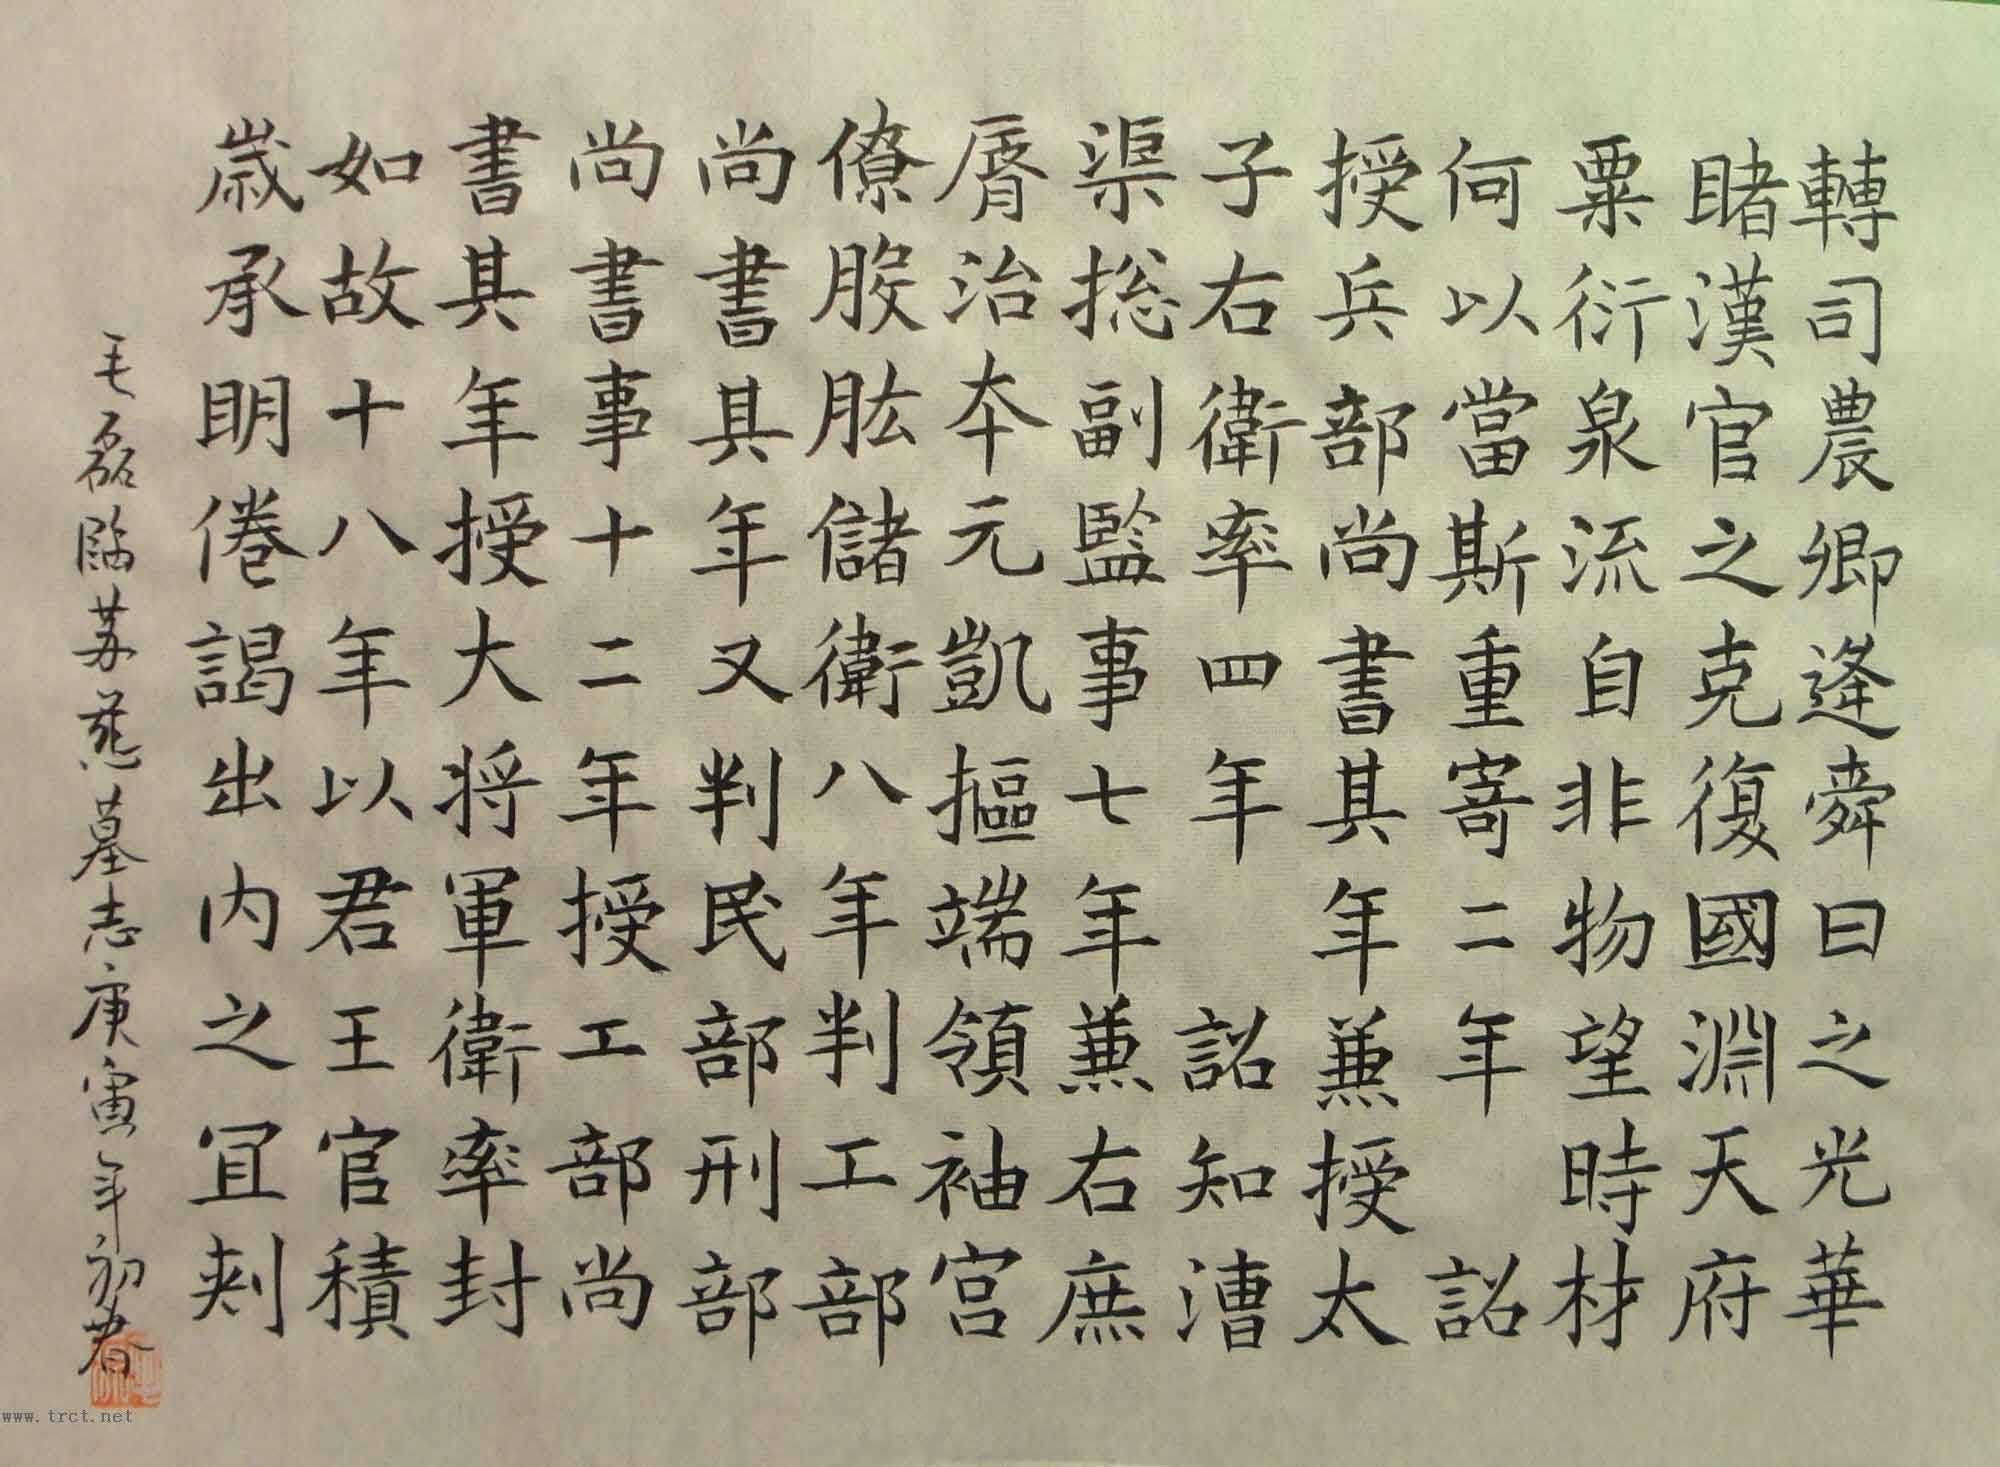 轉司農卿逢舜日之光華
睹漢官之克復國淵天府
粟衍泉流自非物望時材
何以當斯重寄二年　詔
授兵部尚書其年兼授太
子右衛率四年　詔知漕
渠揔副監事七年兼右庶
厝治本元凱摳端領袖宫
僚股肱儲衛八年判工部
尚書其年又判民部刑部
尚書事十二年授工部尚
書其年授大將軍衛率封
如故十八年以君王官積
歲承明倦謁出内之冝剌
毛磊臨苏慈墓志庚寅年初春
www.trct.net